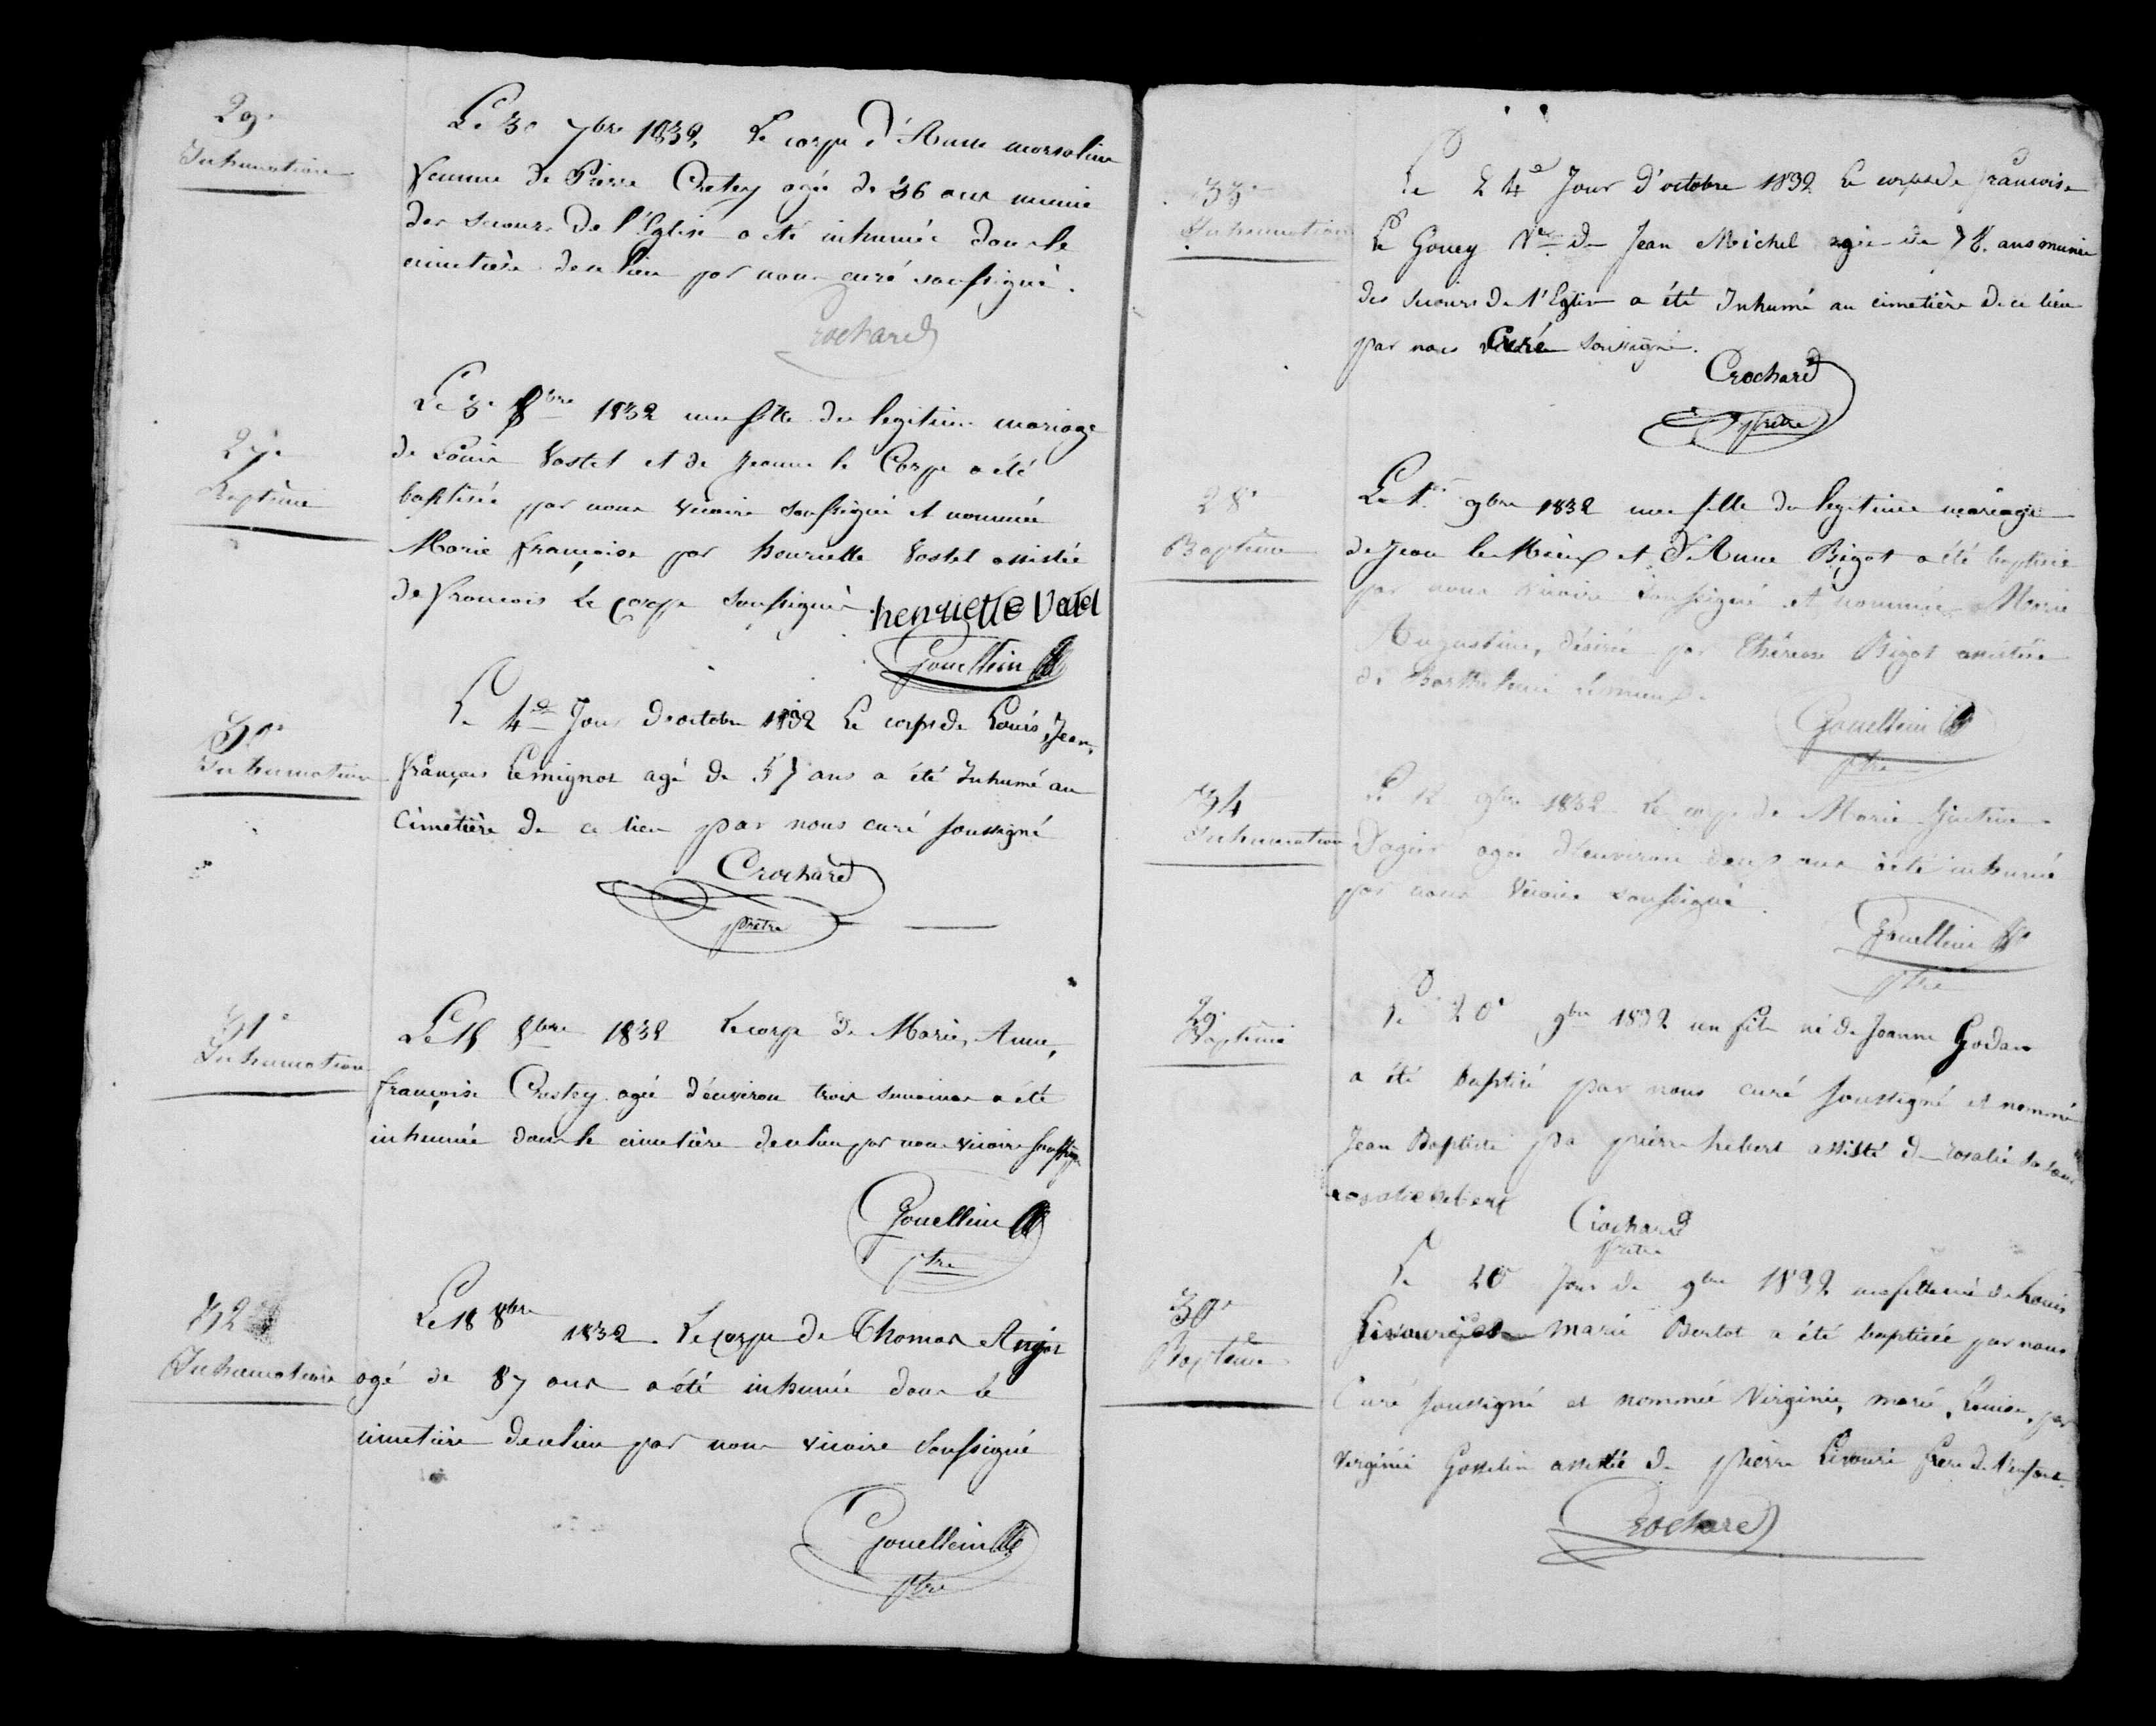 29e
Inhumation
Le 30 7bre 1832 Le corps d'Anne morsaline
femme de Pierre Chatey agée de 36 ans munie
des secours de l'Eglise a été inhumée dans le
cimetière de ce lieu par nous curé soussigné.
Crochard
27e
Baptême
Le 3e 8bre 1832 une fille du legitime mariage
de Louis Vastel et de Jeanne le Corps a été
baptisée par nous vicaire soussigné et nommée
Marie françoise par henriette Vastel assistée
de francois Le Corps soussignés henriette Vastel
Gouellein
30e
Inhumation
Le 4e Jour d'octobre 1832 Le corps de Louis, Jean,
françois Lemignot agé de 57 ans a été Inhumé au
Cimetière de ce lieu par nous curé soussigné
Crochard
prêtre
31e
Inhumation
Le 18 8bre 1832 Le corps de Marie, Anne,
françoise Chatey agée d'environ trois semaines a été
inhumée dans le cimetière de ce lieu par nous vicaire soussigné
Gouellein
ptre
32
Inhumation
Le 18 8bre 1832. Le corps de Thomas Angot
agé de 87 ans a été inhumé dans le
cimetière de ce lieu par nous vicaire soussigné
Gouellein
ptre
33e
Inhumation
Le 24e Jour d'octobre 1832 Le corps de francoise
Le Gouey Ve de Jean Michel agée de 78. ans munie
des secours de l'Eglise a été Inhumé au cimetière de ce lieu
par nous Curé soussigné.
Crochard
prêtre
28e
Baptême
Le 1er 9bre 1832 une fille du legitime mariage
de Jean le Mieux et d'Anne Bigot a été baptisée
par nous vicaire soussigné et nommée Marie
Augustine, désirée par Thérèse Bigot assistée
de Barthelemi Lemieux.
Gouellein
ptre
34
Inhumation
Le 12 9bre 1832 Le corps de Marie Justine
agée d'environ deux ans a été inhumé
par nous Vicaire soussigné.
Gouellein
ptre
29e
Baptême
Le 20e 9bre 1832 un fils né de Jeanne Godan
a été baptisé par nous curé soussigné et nommé
Jean Baptiste pa pierre hebert assisté de rosalie sa soeur
rosalie hebert
Crochard
prêtre
30e
Baptême
Le 20e Jour de 9bre 1832 une fille née de Louis
marie Bertot a été baptisée par nous
Curé soussigné et nommée Virginie, marie, Louise, par
virginie Gosselin assistée de pierre Livouré frère de l'enfant.
Crochard